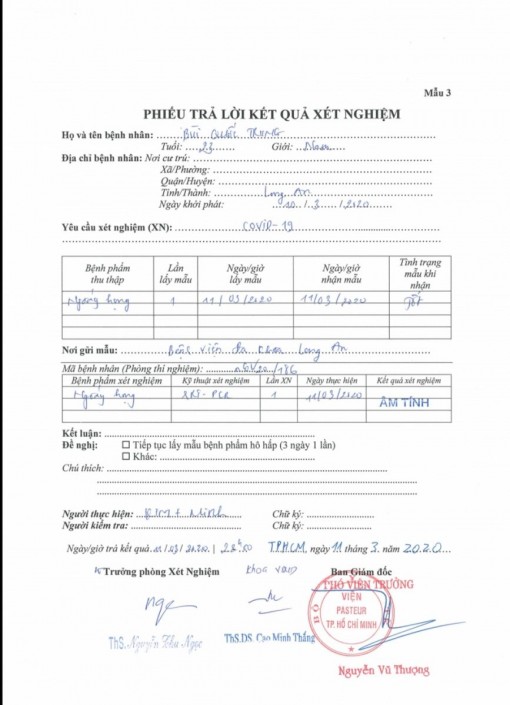 Mẫu 3
PHIẾU TRẢ LỜI KẾT QUẢ XÉT NGHIỆM
Họ và tên bệnh nhân: BÙI QUỐC TRUNG
Tuổi: 23 Giới: Nam
Địa chỉ bệnh nhân: Nơi cư trú:
Xã/Phường:
Quận/Huyện:
Tỉnh/Thành: Long An
Ngày khởi phát: 10 / 3 / 2020
Yêu cầu xét nghiệm (XN): COVID-19
Bệnh phẩm thu thập Lần lấy mẫu Ngày/giờ lấy mẫu Ngày/giờ nhận mẫu Tình trạng mẫu khi nhận
Ngoáy họng 1 11/03/2020 11/03/2020 Tốt
Nơi gửi mẫu: Bệnh viện Đa khoa Long An
Mã bệnh nhân (Phòng thí nghiệm): /186
Bệnh phẩm xét nghiệm Kỹ thuật xét nghiệm Lần XN Ngày thực hiện Kết quả xét nghiệm
Ngoáy họng PCR 1 11/03/2020 ÂM TÍNH
Kết luận:
Đề nghị: ☐ Tiếp tục lấy mẫu bệnh phẩm hô hấp (3 ngày 1 lần)
☐ Khác:
Chú thích:
Người thực hiện: Chữ ký:
Người kiểm tra: Chữ ký:
Ngày/giờ trả kết quả TP.HCM, ngày 11 tháng 3 năm 2020
Trưởng phòng Xét Nghiệm Ban Giám đốc
PHÓ VIỆN TRƯỞNG
VIỆN
PASTEUR
TP. HỒ CHÍ MINH
ThS. Nguyễn Thu Ngọc ThS.DS. Cao Minh Thắng
Nguyễn Vũ Thượng